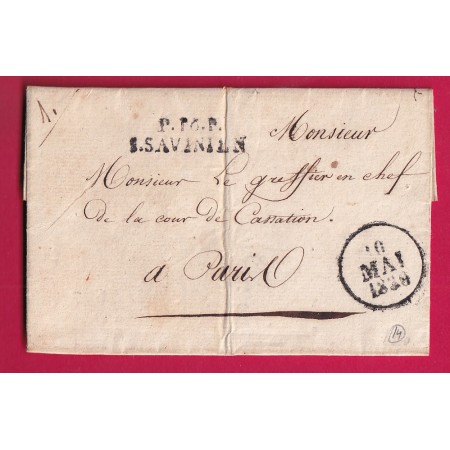 P.16.P.
S.SAVINIEN
Monsieur
Monsieur Le greffier en chef
de la cour de Cassation.
a Paris
10
MAI
1828
14